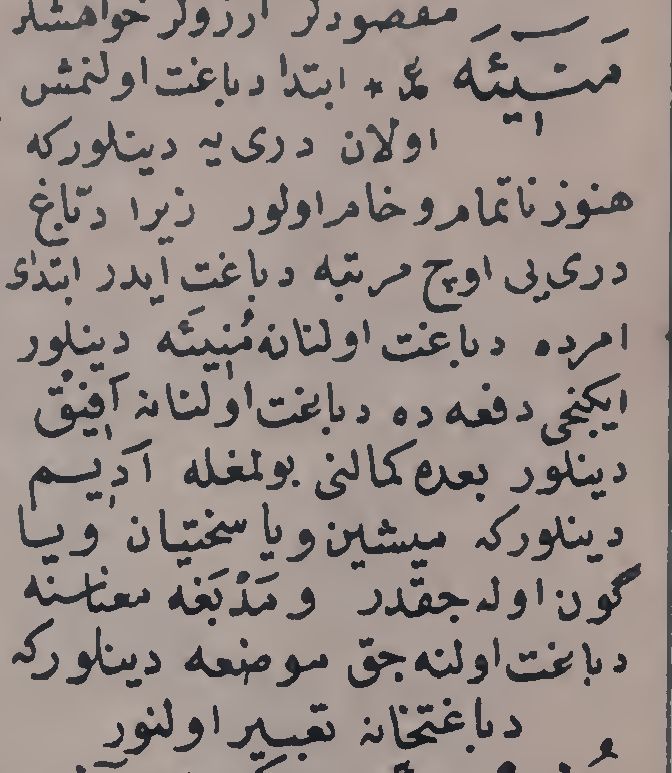 مقصودلر آرزولر خواهشلر
مَنِيئَه ع * ابتدا دباغت اولنمش
اولان درى‌يه دينلوركه
هنوز ناتمام و خام اولور زيرا دبّاغ
درى‌يى اوچ مرتبه دباغت ايدر ابتداى
امرده دباغت اولنانه مَنِيئَه دينلور
ايكنجى دفعه ده دباغت اولنانه اَفِيقْ
دينلور بعده كمالنى بولمغله اَدِيم
دينلوركه ميشين ويا سختيان ويا
گون اوله جقدر و مَدْبَغَه معناسنه
دباغت اولنه جق موضعه دينلوركه
دباغتخانه تعبير اولنور